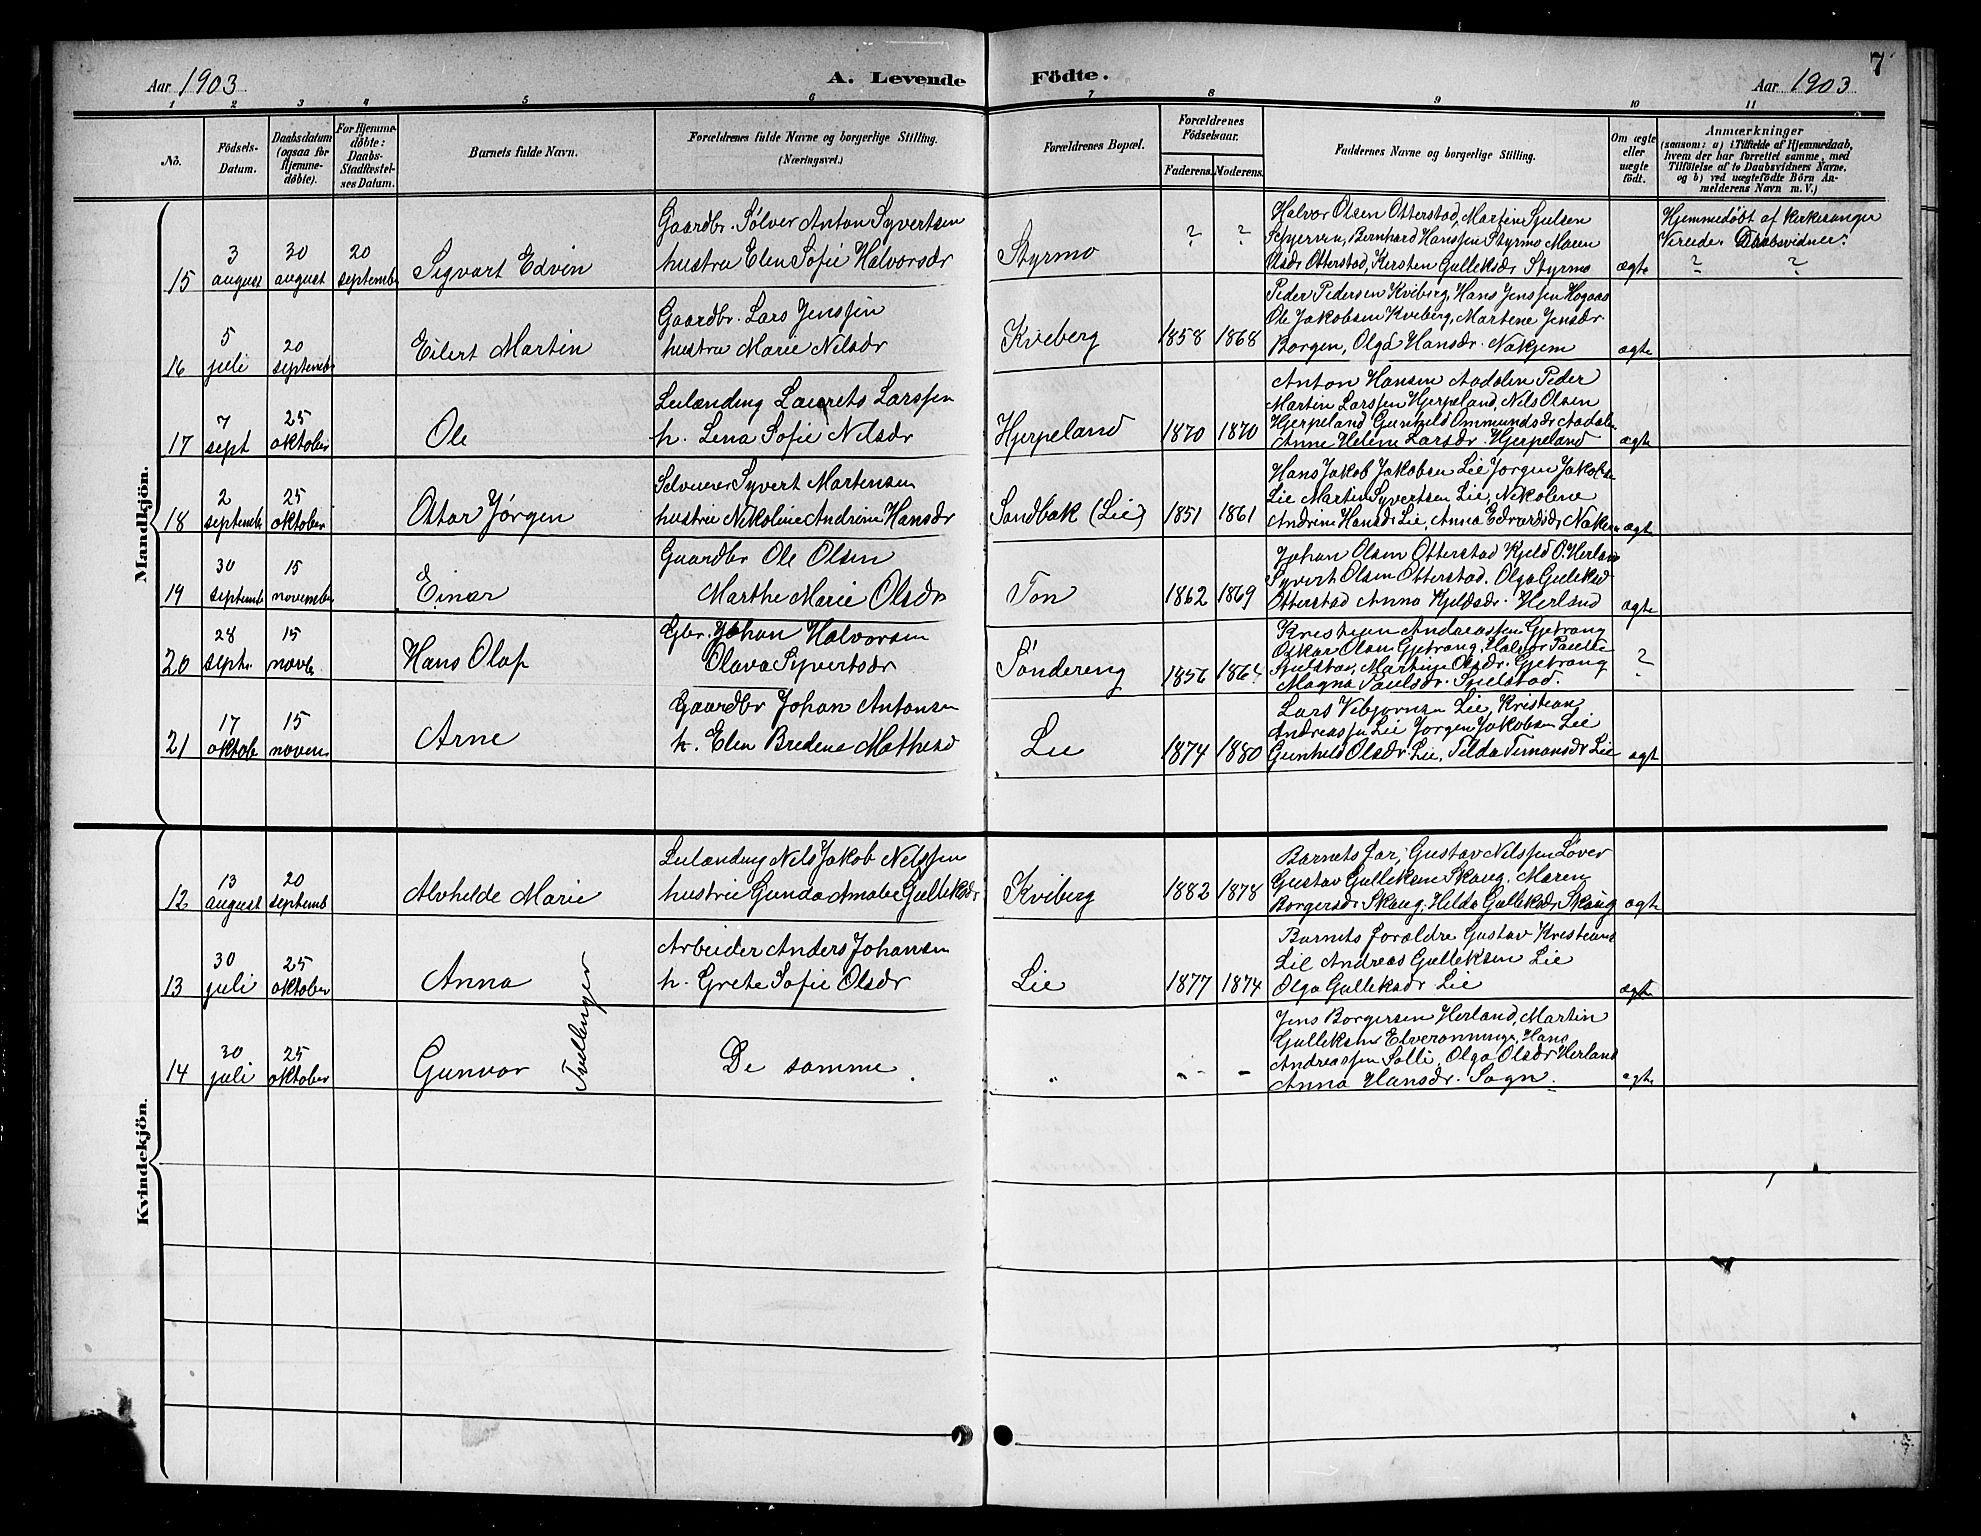 7
Aar 1903
A. Levende Födte.
Aar 1903
1 2 3 4 5 6 7 8 9 10 11
No.
Födsels-Datum.
Daabsdatum (ogsaa for Hjemme-döbte).
For Hjemme-döbte: Daabs-Stadfæstel-ses Datum.
Barnets fulde Navn.
Forældrenes fulde Navne og borgerlige Stilling.
(Næringsvei.)
Forældrenes Bopæl.
Forældrenes Födselsaar.
Faderens. Moderens.
Faddernes Navne og borgerlige Stilling.
Om ægte eller uægte födt.
Anmærkninger
(saasom: a) i Tilfælde af Hjemmedaab,
hvem der har forrettet samme, med
Tilföielse af to Daabsvidners Navne,
og b) ved uægtefödte Börn An-
melderens Navn m. V.)
Mandkjön.
15 3 august 30 august 20 septembr Sigvart Edvin
Gaardbr. Sølver Anton Syvertsen
hustru Elen Sofie Halvorsdr
Styrmo ? ?
Halvor Olsen Otterstad, Martin Sjulsen
Skjerven, Bernhard Hanssen Styrmo Maren
Olsdr Otterstad, Kirsten Gulleksdr Styrmo
ægte
Hjemmedøbt af kirkesanger
Daabsvidner:
? ?
16 5 juli 20 septembr Eilert Martin
Gaardbr. Lars Jenssen
hustru Marie Nilsdr
Kviberg 1858 1868
Peder Pedersen Kviberg, Hans Jenssen Hogaas
Ole Jakobsen Kviberg, Martene Jensdr
Borgen, Olga Hansdr. Nakjem
ægte
17 7 sept 25 oktober Ole
Leilænding Laurets Larssen
h. Lena Sofie Nilsdr
Hjerpeland 1870 1870
Anton Hansen Aadalen Peder
Martin Larssen Hjerpeland, Nils Olsen
Hjerpeland Gunhild Ommundsdr Aadalen
Anne Helene Larsdr. Hjerpeland
ægte
18 2 septembr 25 oktober Ottar Jørgen
Selveier Syvert Martensen
hustru Nikoline Andrine Hansdr
Sandbak (Lie) 1851 1861
Hans Jakob Jakobsen Lie Jørgen Jakobs
Lie Martin Syvertsen Lie, Nikolene
Andrine Hansdr Lie, Anna Edvardsdr Nakjem
ægte
19 30 septembr 15 novembr Einar
Gaardbr Ole Olsen
Marthe Marie Olsdr
Ton 1862 1869
Johan Olsen Otterstad Kjeld O. Herland
Syvert Olsen Otterstad. Olga Guleksd
Otterstad Anna Kjeldsdr. Herland
ægte
20 28 sept. 15 novb. Hans Olaf
Gbr. Johan Halvorsen
Olava Syvertsdr
Søndereng 1856 1864
Kristian Andreassen Gjetrang
Oskar Olsen Gjetrang, Halvor Paulse
Sjulstad, Martine Olsdr. Gjetrang
Magna Paulsdr. Sjulstad.
?
21 17 oktob 15 noven. Arne
Gaardbr Johan Antonsen
h. Elen Bredena Mathisd
Lie 1874 1880
Lars Vebjørnsen Lie, Kristian
Andreassen Lie Jørgen Jakobsen Lie
Gunhild Olsdr Lie, Tilda Timansdr Lie
ægte
Kvindekjön.
12 13 august 20 septemb Alvhilde Marie
Leilænding Nils Jakob Nelssen
hustru Gunda Amalie Gulleksdr
Kviberg 1882 1878
Barnets far, Gustav Nilssen Løver
Gustav Gulleksen Skaug. Maren
Borgersdr Skaug, Hilda Gulleksdr Skaug
ægte
13 30 juli 25 oktober Anna
Tvillinger
Arbeider Anders Johansen
h. Grete Sofie Olsdr
Lie 1877 1874
Barnets forældre Gustav Kristians
Lie Andreas Gulleksen Lie
Olga Gulleksdr Lie
ægte
14 30 juli 25 oktober Gunvor
De samme.
" - -
Jens Borgersen Herland, Martin
Gulleksen Hans
Andreassen Solli, Olga Olsdr Herland
Anna Hansdr. Sogn.
ægte